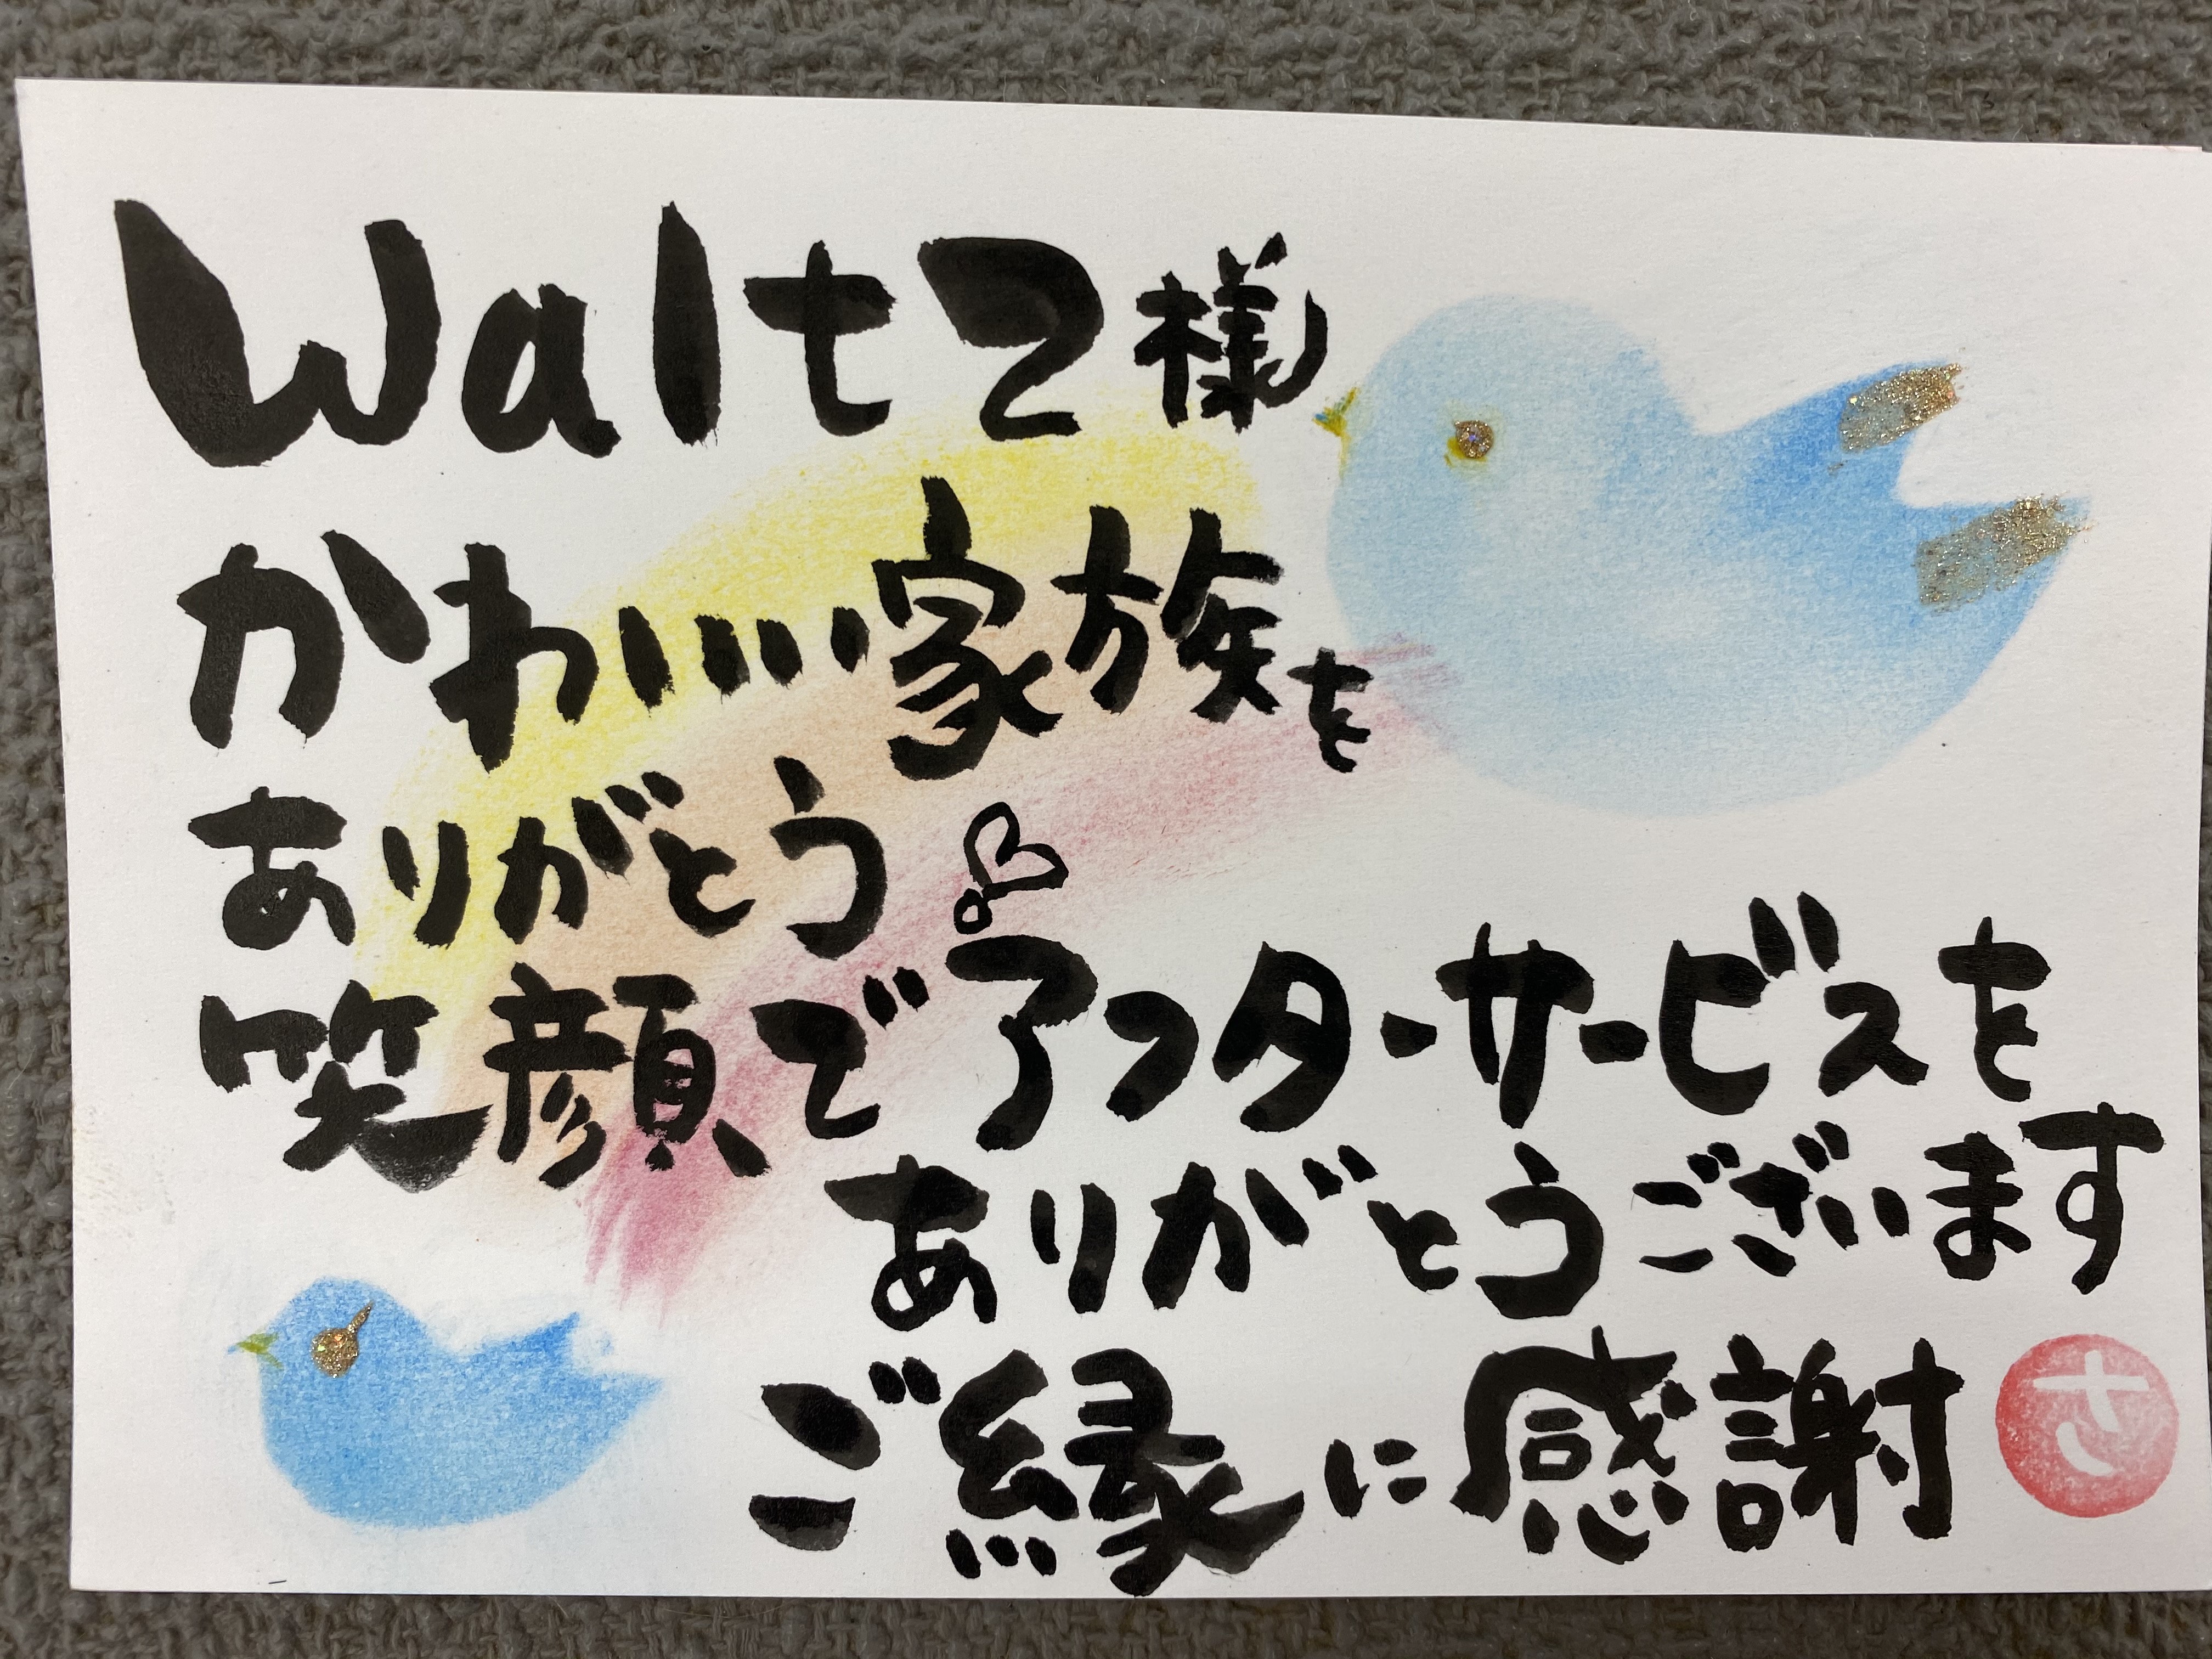 Waltz様
かわいい家族を
ありがとう
笑顔でアフターサービスを
ありがとうございます
ご縁に感謝
さ